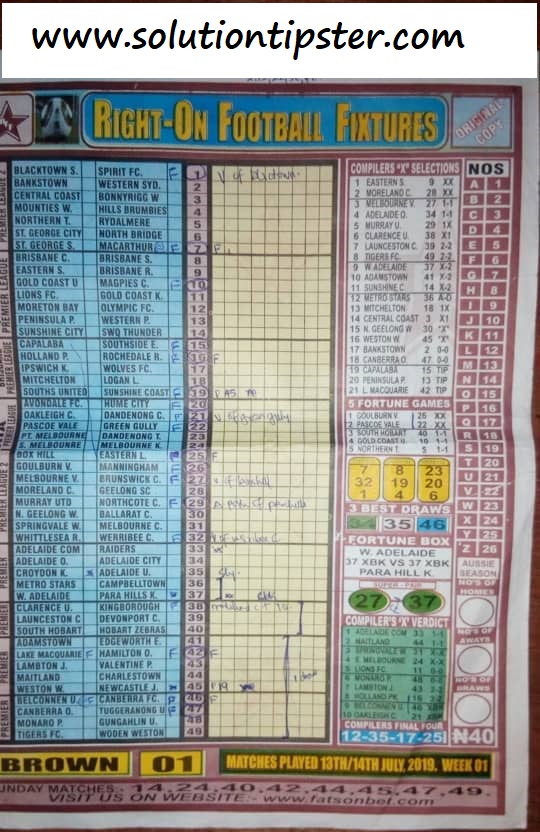 www.solutiontipster.com
RIGHT-ON FOOTBALL FIXTURES
ORIGINAL COPY
BLACKTOWN S. SPIRIT FC. F 1
BANKSTOWN WESTERN SYD. 2
CENTRAL COAST BONNYRIGG W 3
MOUNTIES W. HILLS BRUMBIES 4
NORTHERN T. RYDALMERE 5
ST. GEORGE CITY NORTH BRIDGE 6
ST. GEORGE S. MACARTHUR F 7 F
BRISBANE C. BRISBANE S. 8
EASTERN S. BRISBANE R. 9
GOLD COAST U MAGPIES C. F 10
LIONS FC. GOLD COAST K. 11
MORETON BAY OLYMPIC FC. 12
PENINSULA P. WESTERN P. 13
SUNSHINE CITY SWQ THUNDER 14
CAPALABA SOUTHSIDE E. F 15
HOLLAND P. ROCHEDALE R. F 16 F
IPSWICH K. WOLVES FC. 17
MITCHELTON LOGAN L. 18
SOUTHS UNITED SUNSHINE COAST F 19
AVONDALE FC. HUME CITY F 20
OAKLEIGH C. DANDENONG C. F 21
PASCOE VALE GREEN GULLY F 22
PT. MELBOURNE DANDENONG T. 23
S. MELBOURNE MELBOURNE K. 24
BOX HILL EASTERN L. 25 F
GOULBURN V. MANNINGHAM F 26
MELBOURNE V. BRUNSWICK C. F 27
MORELAND C. GEELONG SC 28
MURRAY UTD NORTHCOTE C. F 29
N. GEELONG W. BALLARAT C. 30
SPRINGVALE W. MELBOURNE C. 31
WHITTLESEA R. WERRIBEE C. F 32
ADELAIDE COM RAIDERS 33
ADELAIDE O. ADELAIDE CITY 34
CROYDON K. ADELAIDE U. 35
METRO STARS CAMPBELLTOWN 36
W. ADELAIDE PARA HILLS K. 37
CLARENCE U. KINGBOROUGH F 38
LAUNCESTON C DEVONPORT C. 39
SOUTH HOBART HOBART ZEBRAS 40
ADAMSTOWN EDGEWORTH E. 41
LAKE MACQUARIE F HAMILTON O. F 42 F
LAMBTON J. VALENTINE P. 43
MAITLAND CHARLESTOWN 44
WESTON W. NEWCASTLE J. 45
BELCONNEN U. F CANBERRA FC. F 46 F
CANBERRA O. TUGGERANONG U F 47
MONARO P. GUNGAHLIN U. 48
TIGERS FC. WODEN WESTON 49
COMPILERS "X" SELECTIONS
1 EASTERN S. 9 XX
2 MORELAND C. 28 XX
3 MELBOURNE V. 27 1-1
4 ADELAIDE O. 34 1-1
5 MURRAY U. 29 1X
6 CLARENCE U. 38 X1
7 LAUNCESTON C. 39 2-2
8 TIGERS FC. 49 2-2
9 W.ADELAIDE 37 X-2
10 ADAMSTOWN 41 X-2
11 SUNSHINE C 14 X-2
12 METRO STARS 36 A-D
13 MITCHELTON 18 1X
14 CENTRAL COAST 3 X1
15 N. GEELONG W 30 "X"
16 WESTON W. 45 "X"
17 BANKSTOWN 2 0-0
18 CANBERRA O. 47 0-0
19 CAPALABA 15 TIP
20 PENINSULA P. 13 TIP
21 L. MACQUARIE 42 TIP
5 FORTUNE GAMES
1 GOULBURN V. 26 XX
2 PASCOE VALE 22 XX
3 SOUTH HOBART 40 1-1
4 GOLD COAST U 10 1-1
5 NORTHERN T. 5 1-1
7 8 23
32 19 20
1 4 6
3 BEST DRAWS
34 35 46
FORTUNE BOX
W. ADELAIDE
37 XBK 37 XBK
PARA HILL K.
SUPER - PAIR
27 37
COMPILER'S 'X' VERDICT
1 ADELAIDE COM 33 1-1
2 MAITLAND 44 1-1
3 SPRINGVALE W 31 X-X
4 E. MELBOURNE 24 X-X
5 LIONS FC. 11 0-0
6 MONARO P. 48 0-0
7 LAMBTON J. 43 2-2
8 HOLLAND PK. 16 2-2
9 BELCONNEN U. 46 XBK
10 OAKLEIGH C. 21 XBK
COMPILERS FINAL FOUR
12-35-17-25
NOS
A 1
B 2
C 3
D 4
E 5
F 6
G 7
H 8
I 9
J 10
K 11
L 12
M 13
N 14
O 15
P 16
Q 17
R 18
S 19
T 20
U 21
V 22
W 23
X 24
Y 25
Z 26
AUSSIE SEASON
NO'S OF HOMES
NO'S OF AWAYS
NO'S OF DRAWS
₦40
BROWN 01 MATCHES PLAYED 13TH/14TH JULY, 2019. WEEK 01
UNDAY MATCHES:- 14,24,40,42,44,45,47,49.
VISIT US ON WEBSITE:- www.fatsonbet.com